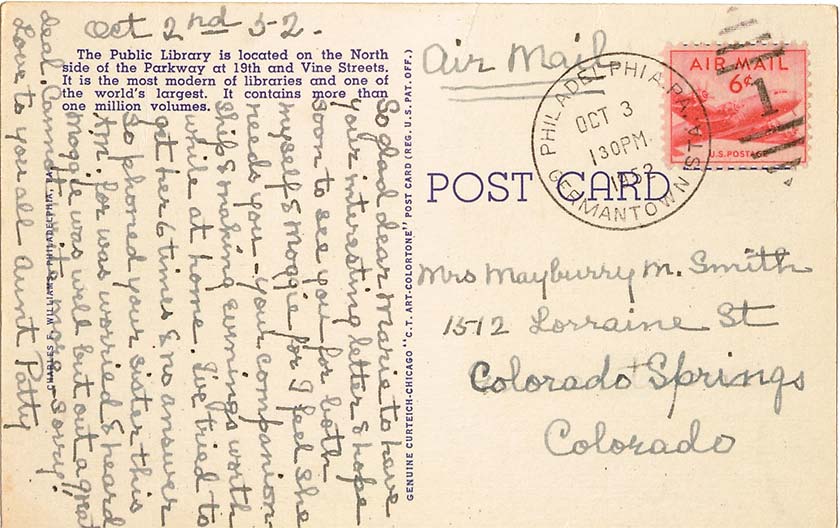 Oct 2nd 52.
The Public Library is located on the North
side of the Parkway at 19th and Vine Streets.
It is the most modern of libraries and one of
the world's largest. It contains more than
one million volumes.
So glad dear Marie to have
your interesting letter & hope
soon to see you for both
myself & Moggie for I feel she
needs you - your companion-
ship & making evenings worth
while at home. I've tried to
get her 6 times & no answer
so phoned your sister this
A.M. for was worried & heard
Moggie was well but out a great
deal. Cannot write more - Sorry!
Love to you all Aunt Patty
CHARLES F. WILLIAMS, PHILADELPHIA, PA.
GENUINE CURTEICH-CHICAGO "C.T. ART-COLORTONE" POST CARD (REG. U.S. PAT. OFF.)
Air Mail
PHILADELPHIA, PA.
OCT 3
130PM
1952
GERMANTOWN STA.
AIR MAIL
6¢
U.S. POSTAGE
1
POST CARD
Mrs Mayburry M. Smith
1512 Lorraine St
Colorado Springs
Colorado